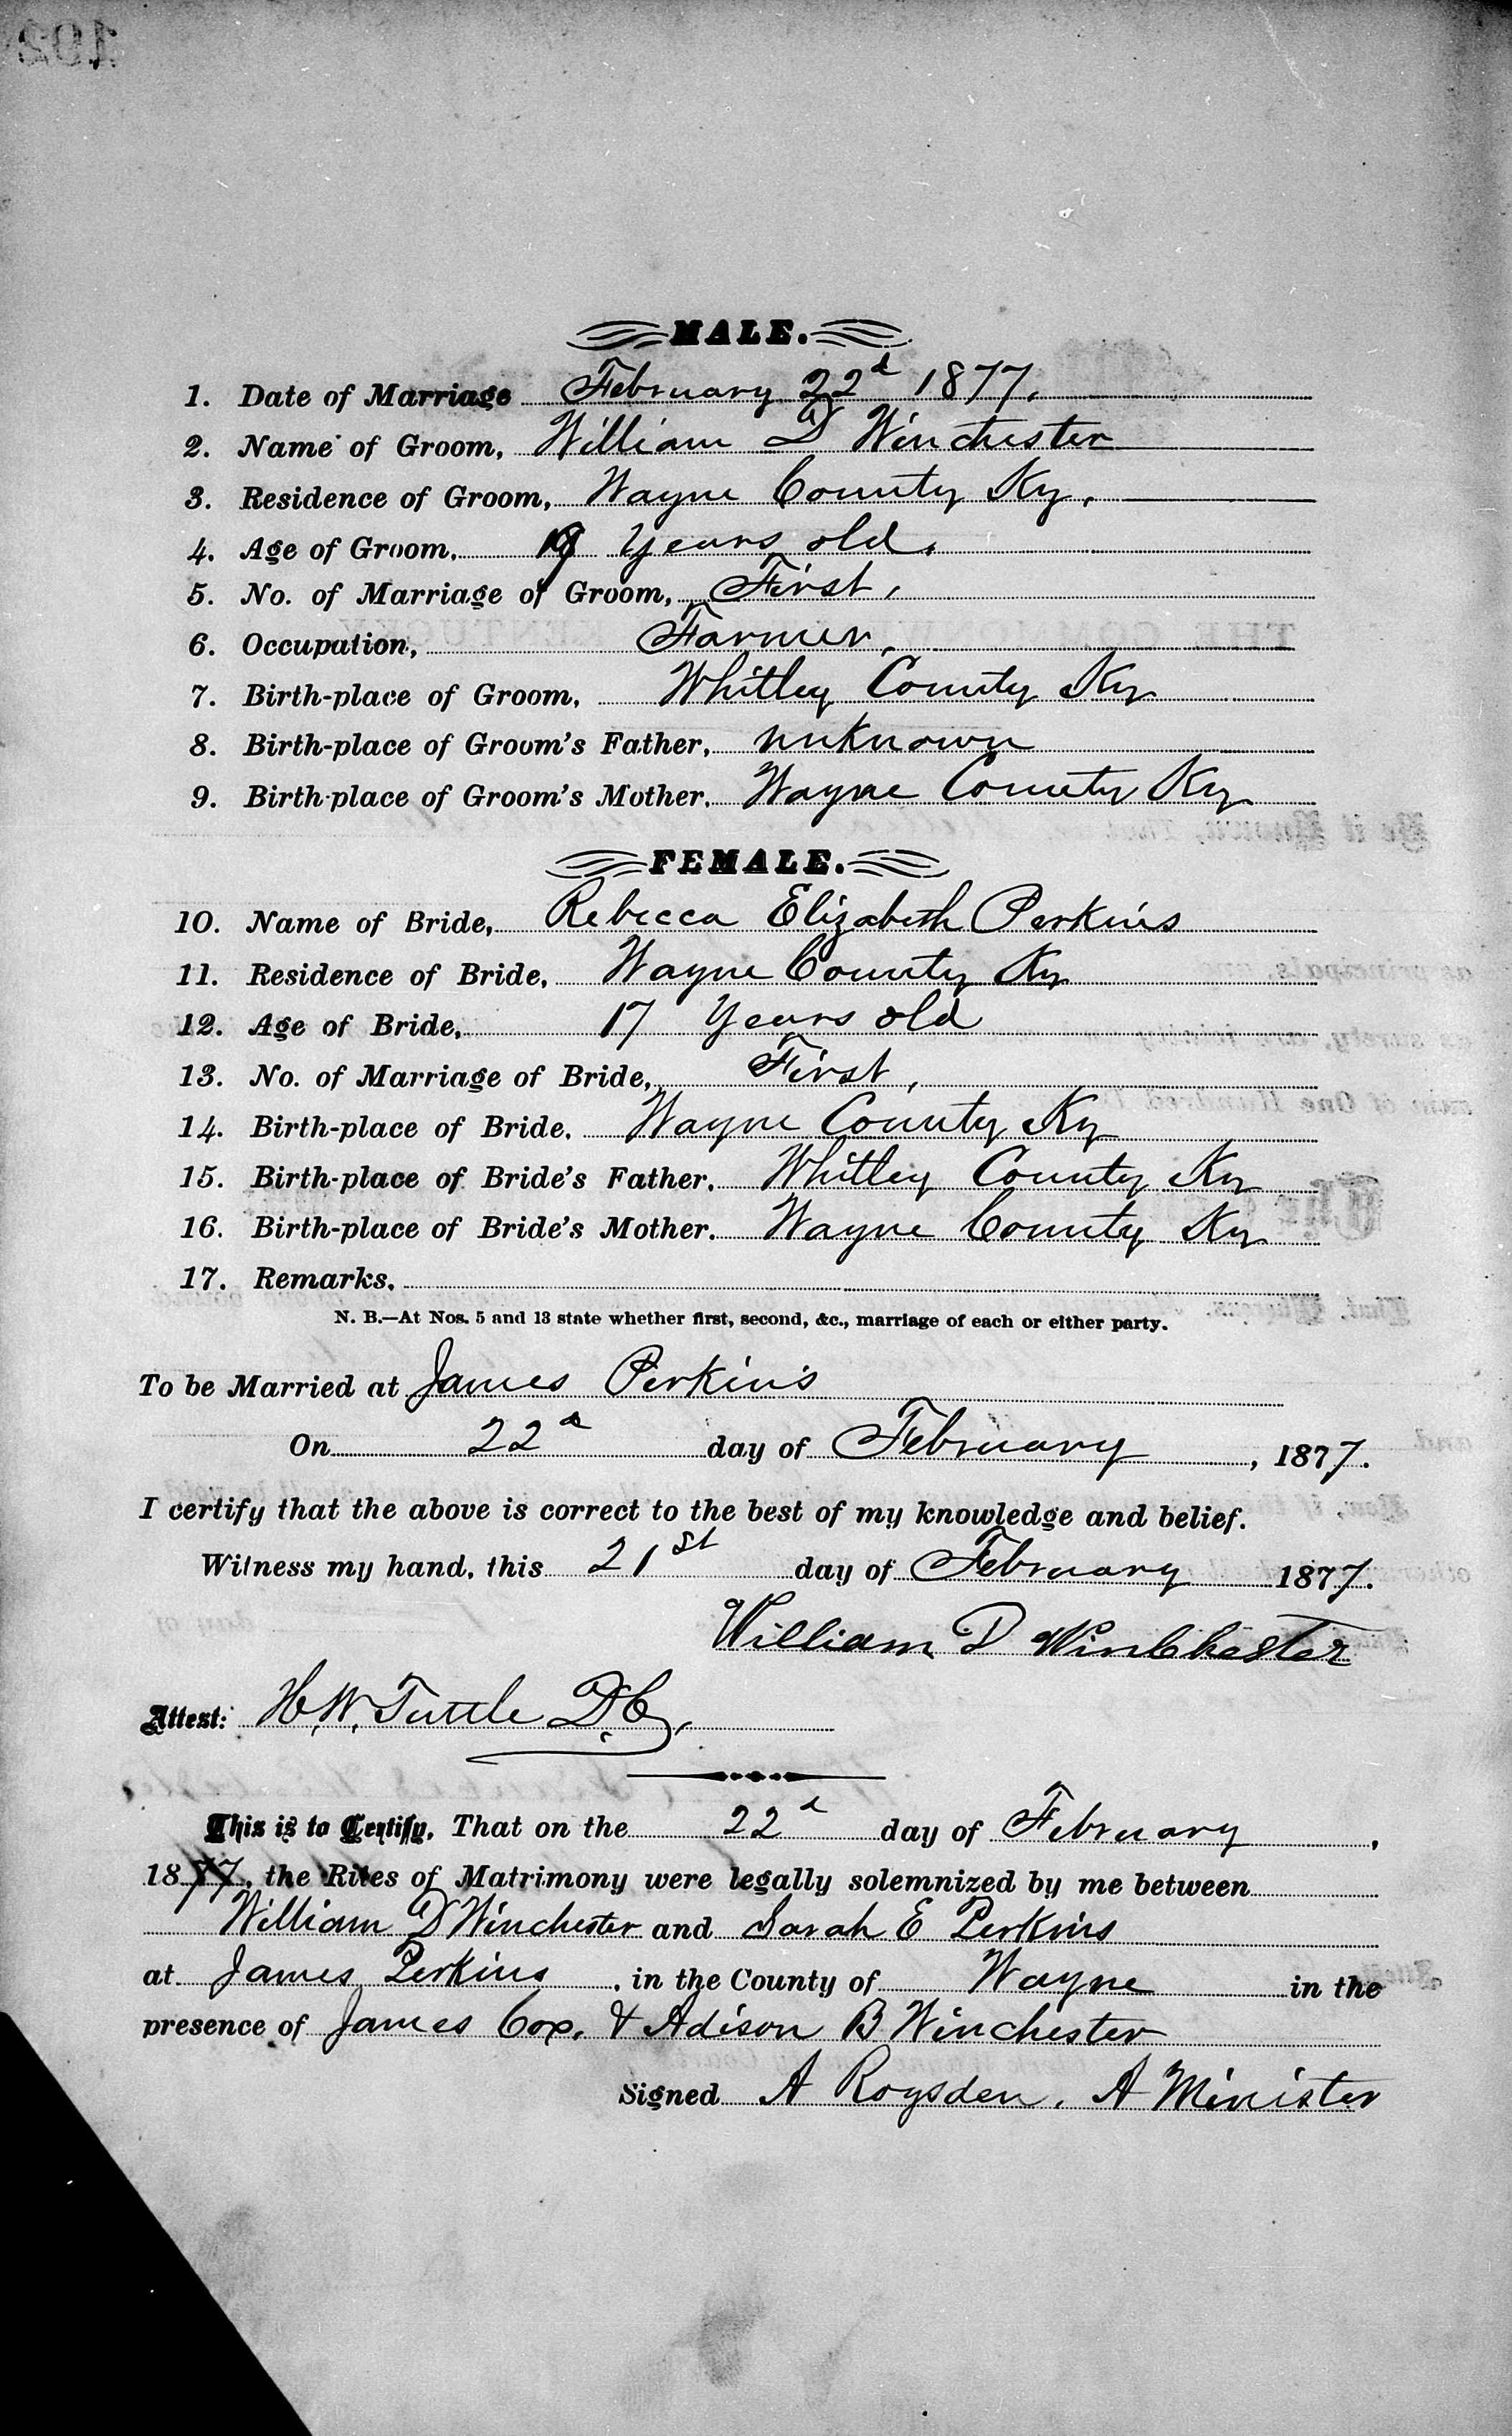 MALE.
1. Date of Marriage February 22d 1877.
2. Name of Groom, William D Winchester
3. Residence of Groom, Wayne County Ky.
4. Age of Groom, Years old.
5. No. of Marriage of Groom, First,
6. Occupation, Farmer,
7. Birth-place of Groom, Whitley County Ky
8. Birth-place of Groom's Father, unknown
9. Birth-place of Groom's Mother. Wayne County Ky
FEMALE.
10. Name of Bride, Rebecca Elizabeth Perkins
11. Residence of Bride, Wayne County Ky
12. Age of Bride, 17 Years old
13. No. of Marriage of Bride, First,
14. Birth-place of Bride. Wayne County Ky
15. Birth-place of Bride's Father. Whitley County Ky
16. Birth-place of Bride's Mother. Wayne County Ky
17. Remarks.
N. B.—At Nos. 5 and 13 state whether first, second, &c., marriage of each or either party.
To be Married at James Perkins
On 22d day of February, 1877.
I certify that the above is correct to the best of my knowledge and belief.
Witness my hand, this 21st day of February 1877.
William D Winchester
Attest: H. W. Tuttle D.C.
This is to Certify, That on the 22d day of February,
1877, the Rites of Matrimony were legally solemnized by me between
William D Winchester and Sarah E Perkins
at James Perkins, in the County of Wayne in the
presence of James Cox, & Adison B Winchester
Signed A Roysden. A Minister